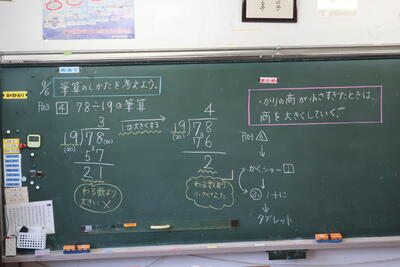 めあて
筆算のしかたを考えよう。
P103 4 78÷19の筆算
3
19)78
(20) (80)
57
21
わる数より
大きい ×
1つ大きくする
4
19)78
(20)
76
2
わる数より
小さくなった
まとめ
かりの商が小さすぎたときは、
商を大きくしていく。
P103
↓
かくショー 1
↓
ノートに
↓
タブレット